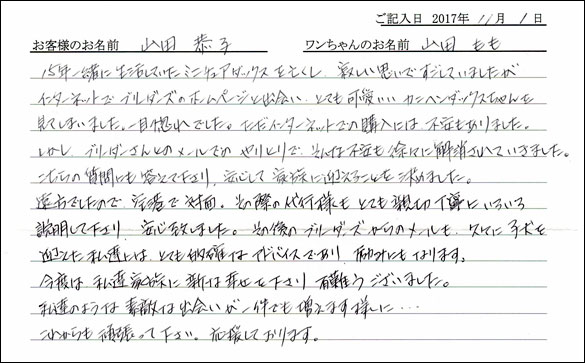 ご記入日 2017年 11月 1日
お客様のお名前 山田 恭子 ワンちゃんのお名前 山田 もも
15年一緒に生活していたミニチュアダックスを亡くし、寂しい思いですごしていましたが
インターネットでブリーダーズのホームページと出会い、とても可愛いい カニヘンダックスちゃんを
見てしまいました。一目惚れでした。ただインターネットでの購入には不安もありました。
しかし、ブリーダーさんとのメールでの やりとりで、そんな不安も徐々に解消されていきました。
こちらの質問にも答えて下さり、安心して 家族に迎えることを決めました。
遠方でしたので 空港で対面。その際の代行様も とても親切丁寧にいろいろ
説明して下さり 安心致しました。その後のブリーダーズからのメールも、久々に子犬を
迎えた私達には、とても的確なアドバイスであり 励みにもなります。
今度は 私達家族に 新な幸せを下さり 有難うございました。
私達のような 素敵な出会いが一件でも増えます様に…
これからも頑張って下さい。応援しております。